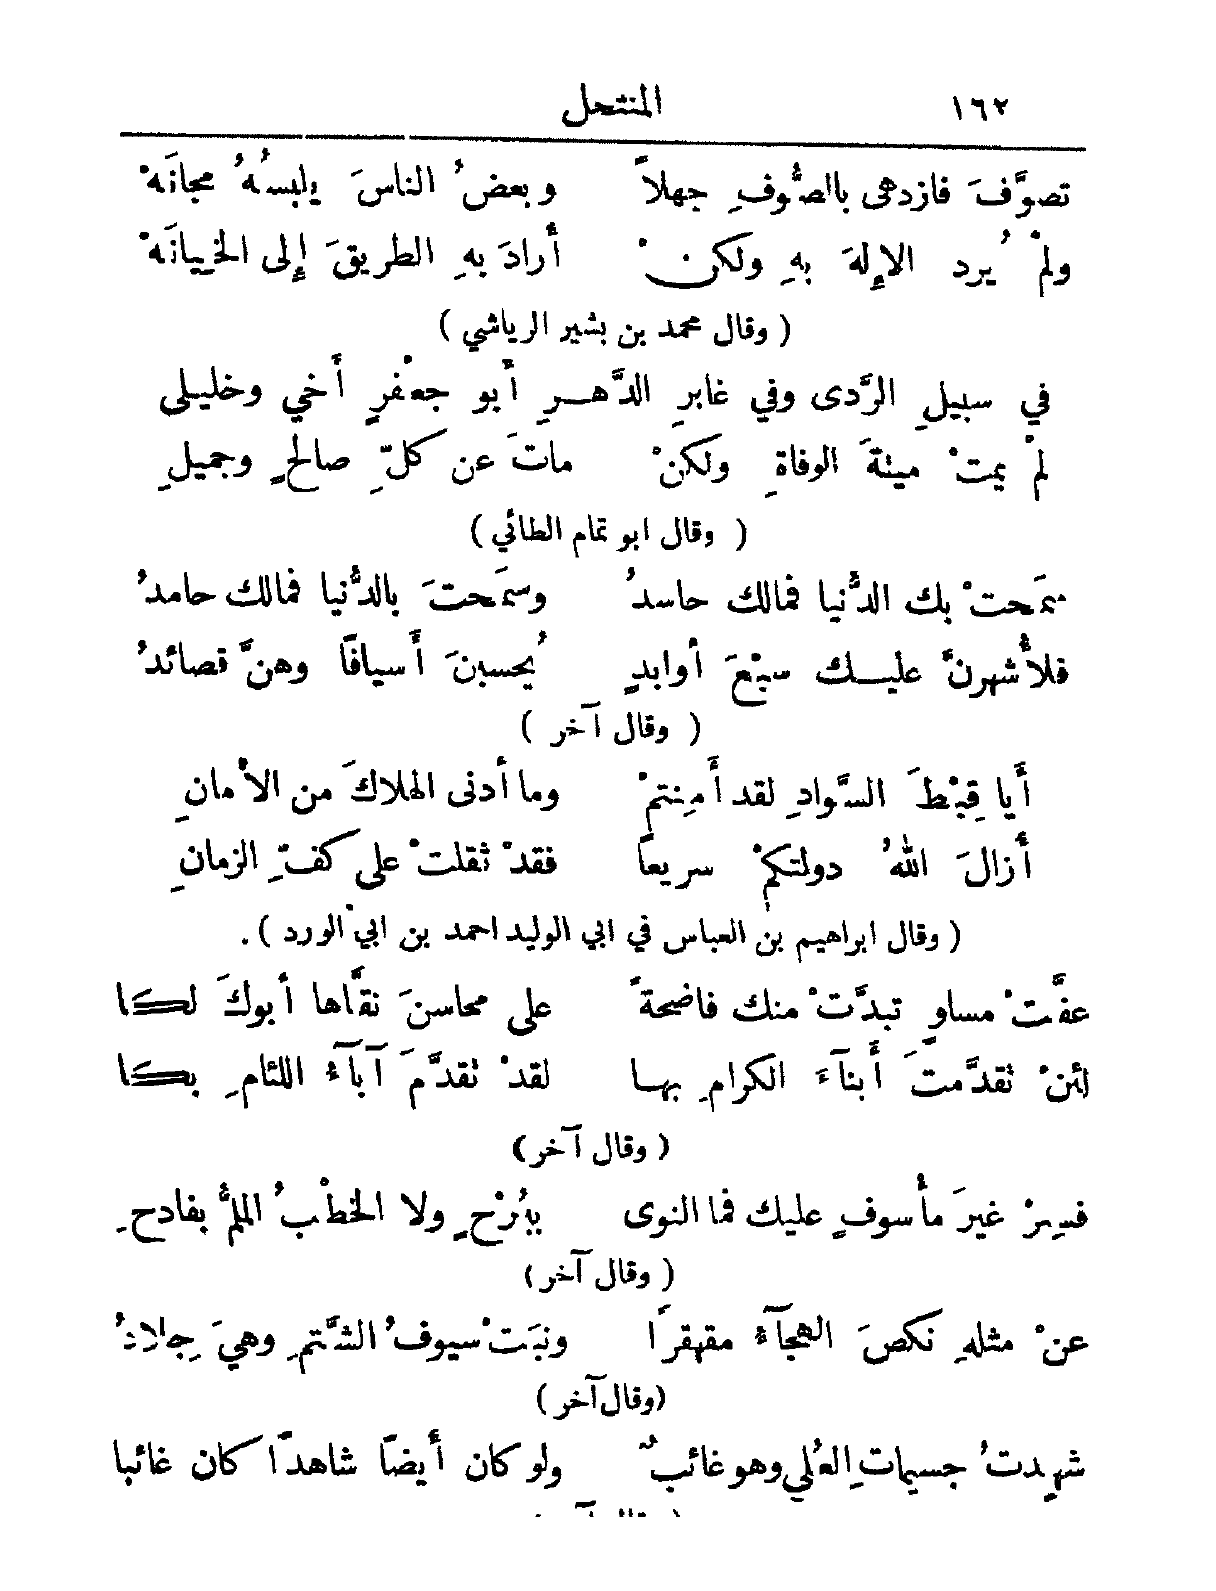 ١٦٢ المنتحل
تصوَّفَ فازدهى باالصُّوفِ جهلاً وبعضُ الناسَ يلبسُهُ مجانَهْ
ولمْ يُرد الإِلهَ بهِ ولكنْ أَرادَ بهِ الطريقَ إِلى الخييانَهْ
( وقال محمد بن بشير الرياشي )
في سبيلِ الرَّدى وفي غابرِ الدَّهــرِ أَبو جعْفرٍ أَخي وخليلى
لمْ يمتْ ميتةَ الوفاةِ ولكنْ ماتَ عن كلِّ صالحٍ وجميلِ
( وقال ابو تمام الطائي )
سمَحتْ بك الدُّنيا فمالك حاسدُ وسمَحتَ بالدُّنيا فمالك حامدُ
فلأُشهرنَّ عليــك سبْعَ أَوابدٍ يُحسبنَ أَسيافًا وهنَّ قصائدُ
( وقال آخر )
أَيا قِبْطَ السَّوادِ لقد أَمِنتمْ وما أَدنى الهلاكَ من الأَمانِ
أَزالَ اللهُ دولتكمْ سريعاً فقدْ ثقلتْ على كفِّ الزمانِ
( وقال ابراهيم بن العباس في ابي الوليد احمد بن ابي الورد ) .
عفَّتْ مساوٍ تبدَّتْ منك فاضحةً على محاسنَ نقَّاها أَبوكَ لكا
لئنْ تقدَّمتَ أَبنآءَ الكرامِ بهــا لقدْ تقدَّمَ آبآءُ اللئامِ بكا
( وقال آخر )
فسِرْ غيرَ مأْسوفٍ عليك فما النوى بِبُرْحٍ ولا الخطْبُ الملُّم بفادحِ
( وقال آخر )
عنْ مثلهِ نكصَ الهجآءُ مقهقراً ونبَتْ سيوفُ الشَّتمِ وهيَ حِدادُ
(وقال آخر )
شهِدتُ جسيماتِ العُلي وهو غائبٌ ولو كان أَيضًا شاهدًا كان غائبا